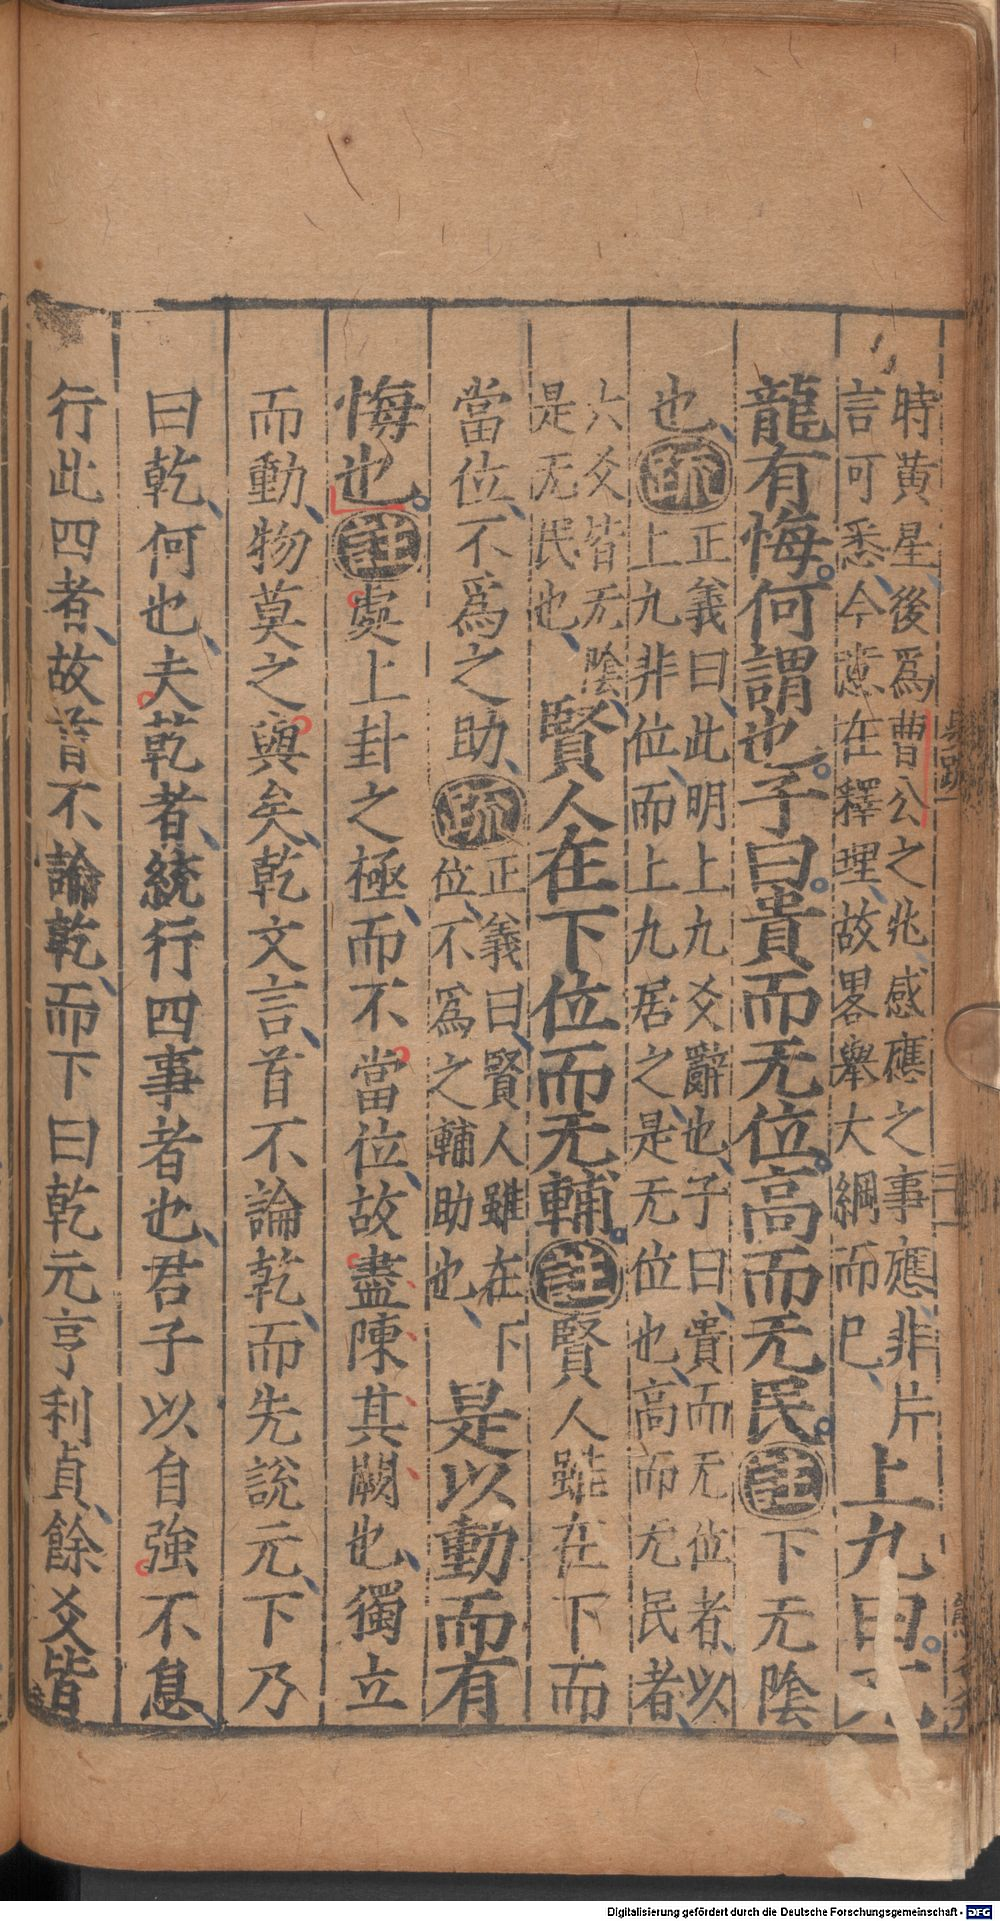 時黃星、後爲曹公之兆、感應之事應、非片
言可悉、今意在釋理、故畧舉大綱而巳、
上九曰。亢
龍有悔。何謂也。子曰。貴而无位。高而无民。
註
下无陰
也、
疏
正義曰、此明上九爻辭也、子曰、貴而无位者、以
上九非位、而上九居之、是无位也、高而无民者、
六爻皆无陰、
是无民也、
賢人在下位而无輔。
註
賢人雖在下而
當位、不爲之助、
疏
正義曰、賢人雖在下
位、不爲之輔助也、
是以動而有
悔也。
註
處上卦之極、而不當位、故盡陳其闕也、獨立
而動、物莫之與矣、乾文言、首不論乾、而先說元、下乃
曰乾、何也、夫乾者、統行四事者也、君子以自強不息、
行此四者、故首不論乾、而下曰乾元亨利貞、餘爻皆
Digitalisierung gefördert durch die Deutsche Forschungsgemeinschaft - DFG